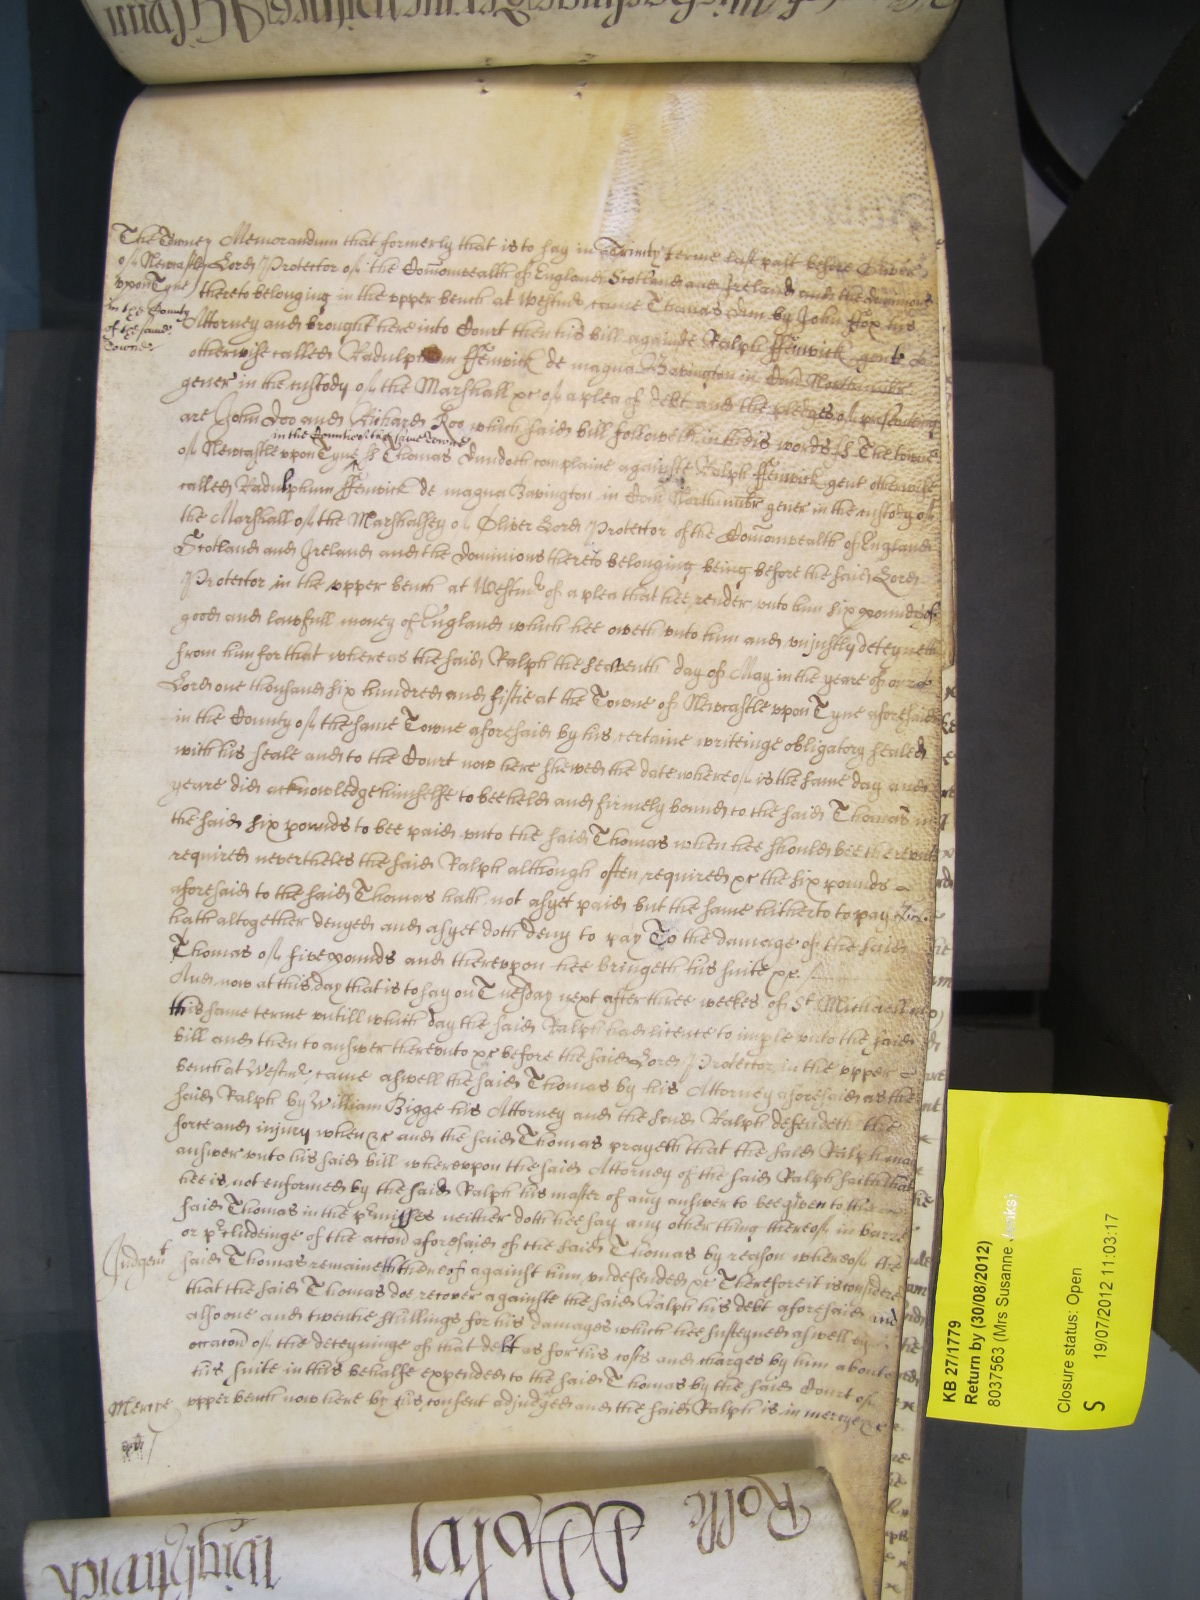 The Towne Memorandum that formerly that is to say in Trinity terme last past before Oliver
of Newcastle Lord Protector of the Com̄onwealth of England Scotland and Ireland and the dominions
vpon Tyne thereto belonging in the vpper bench at Westmr came Thomas by John Ffox his
in the County Attorney and brought here into Court then his bill againste Ralph Ffenwick gent
of the same otherwise called Radulphum Ffenwick de magna Bavington in Com Northumbr
Towne gener in the custody of the Marshall &c of a plea of debt and the pledges of prosecuting
are John Doo and Richard Roo which said bill followeth in theis words ss The towne
in the Countie of the same Towne
of Newcastle vpon Tyne ss Thomas complaine againste Ralph Ffenwick gent otherwise
called Radulphum Ffenwick de magna Bavington in Com Northumbr gener in the custody of
the Marshall of the Marshalsey of Oliver Lord Protector of the Com̄onwealth of England
Scotland and Ireland and the Dominions thereto belonging being before the said Lord
Protector in the vpper bench at Westmr of a plea that hee render vnto him six pounds of
good and lawfull money of England which hee oweth vnto him and vnjustly deteyneth
from him for that whereas the said Ralph the seaventh day of May in the yeare of our
Lord one thousand six hundred and fiftie at the Towne of Newcastle vpon Tyne aforesaid
in the County of the same Towne aforesaid by his certaine writeinge obligatory sealed
with his seale and to the Court now here shewed the date whereof is the same day and
yeare did acknowledge himselfe to bee held and firmely bound to the said Thomas in
the said six pounds to bee paid vnto the said Thomas when hee should bee therevnto
required nevertheles the said Ralph although often required &c the six pounds
aforesaid to the said Thomas hath not as yet paid but the same hitherto to pay
hath altogether denyed and as yet doth deny to pay To the damage of the said
Thomas of five pounds and therevpon hee bringeth his suite &c.
And now at this day that is to say on Tuesday next after three weekes of St Michaell
this same terme vntill which day the said Ralph had licence to imple vnto the said
bill and then to answer therevnto &c before the said Lord Protector in the vpper
bench at Westmr came aswell the said Thomas by his Attorney aforesaid as the
said Ralph by William Bigge his Attorney and the said Ralph defendeth the
force and injury when &c and the said Thomas prayeth that the said Ralph may
answer vnto his said bill wherevpon the said Attorney of the said Ralph saith that
hee is not enformed by the said Ralph his master of any answer to bee given to the
said Thomas in the pʳmisses neither doth hee say any other thing thereof in barre
or pʳcludeinge of the accon̄ aforesaid of the said Thomas by reason whereof the
Judgemt said Thomas remaineth thereof against him vndefended &c Therefore it is considered
that the said Thomas doe recover againste the said Ralph his debt aforesaid and
also one and twentie shillings for his damages which hee susteyned aswell by
occacon̄ of the deteyninge of that debt as for his costs and charges by him about
his suite in this behalfe expended to the said Thomas by the said Court of
Mercye vpper bench now here by his consent adjudged and the said Ralph is in mercye &c
Rolle
KB 27/1779
Return by (30/08/2012)
8037563 (Mrs Susanne
Closure status: Open
S 19/07/2012 11:03:17